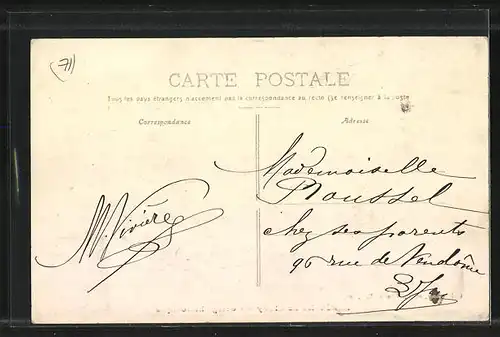 (71)
CARTE POSTALE
Tous les pays étrangers n'acceptent pas la correspondance au recto (Se renseigner à la poste
Correspondance
Adresse
M. Vivière
Mademoiselle
Roussel
chez ses parents
96 rue de Vendôme